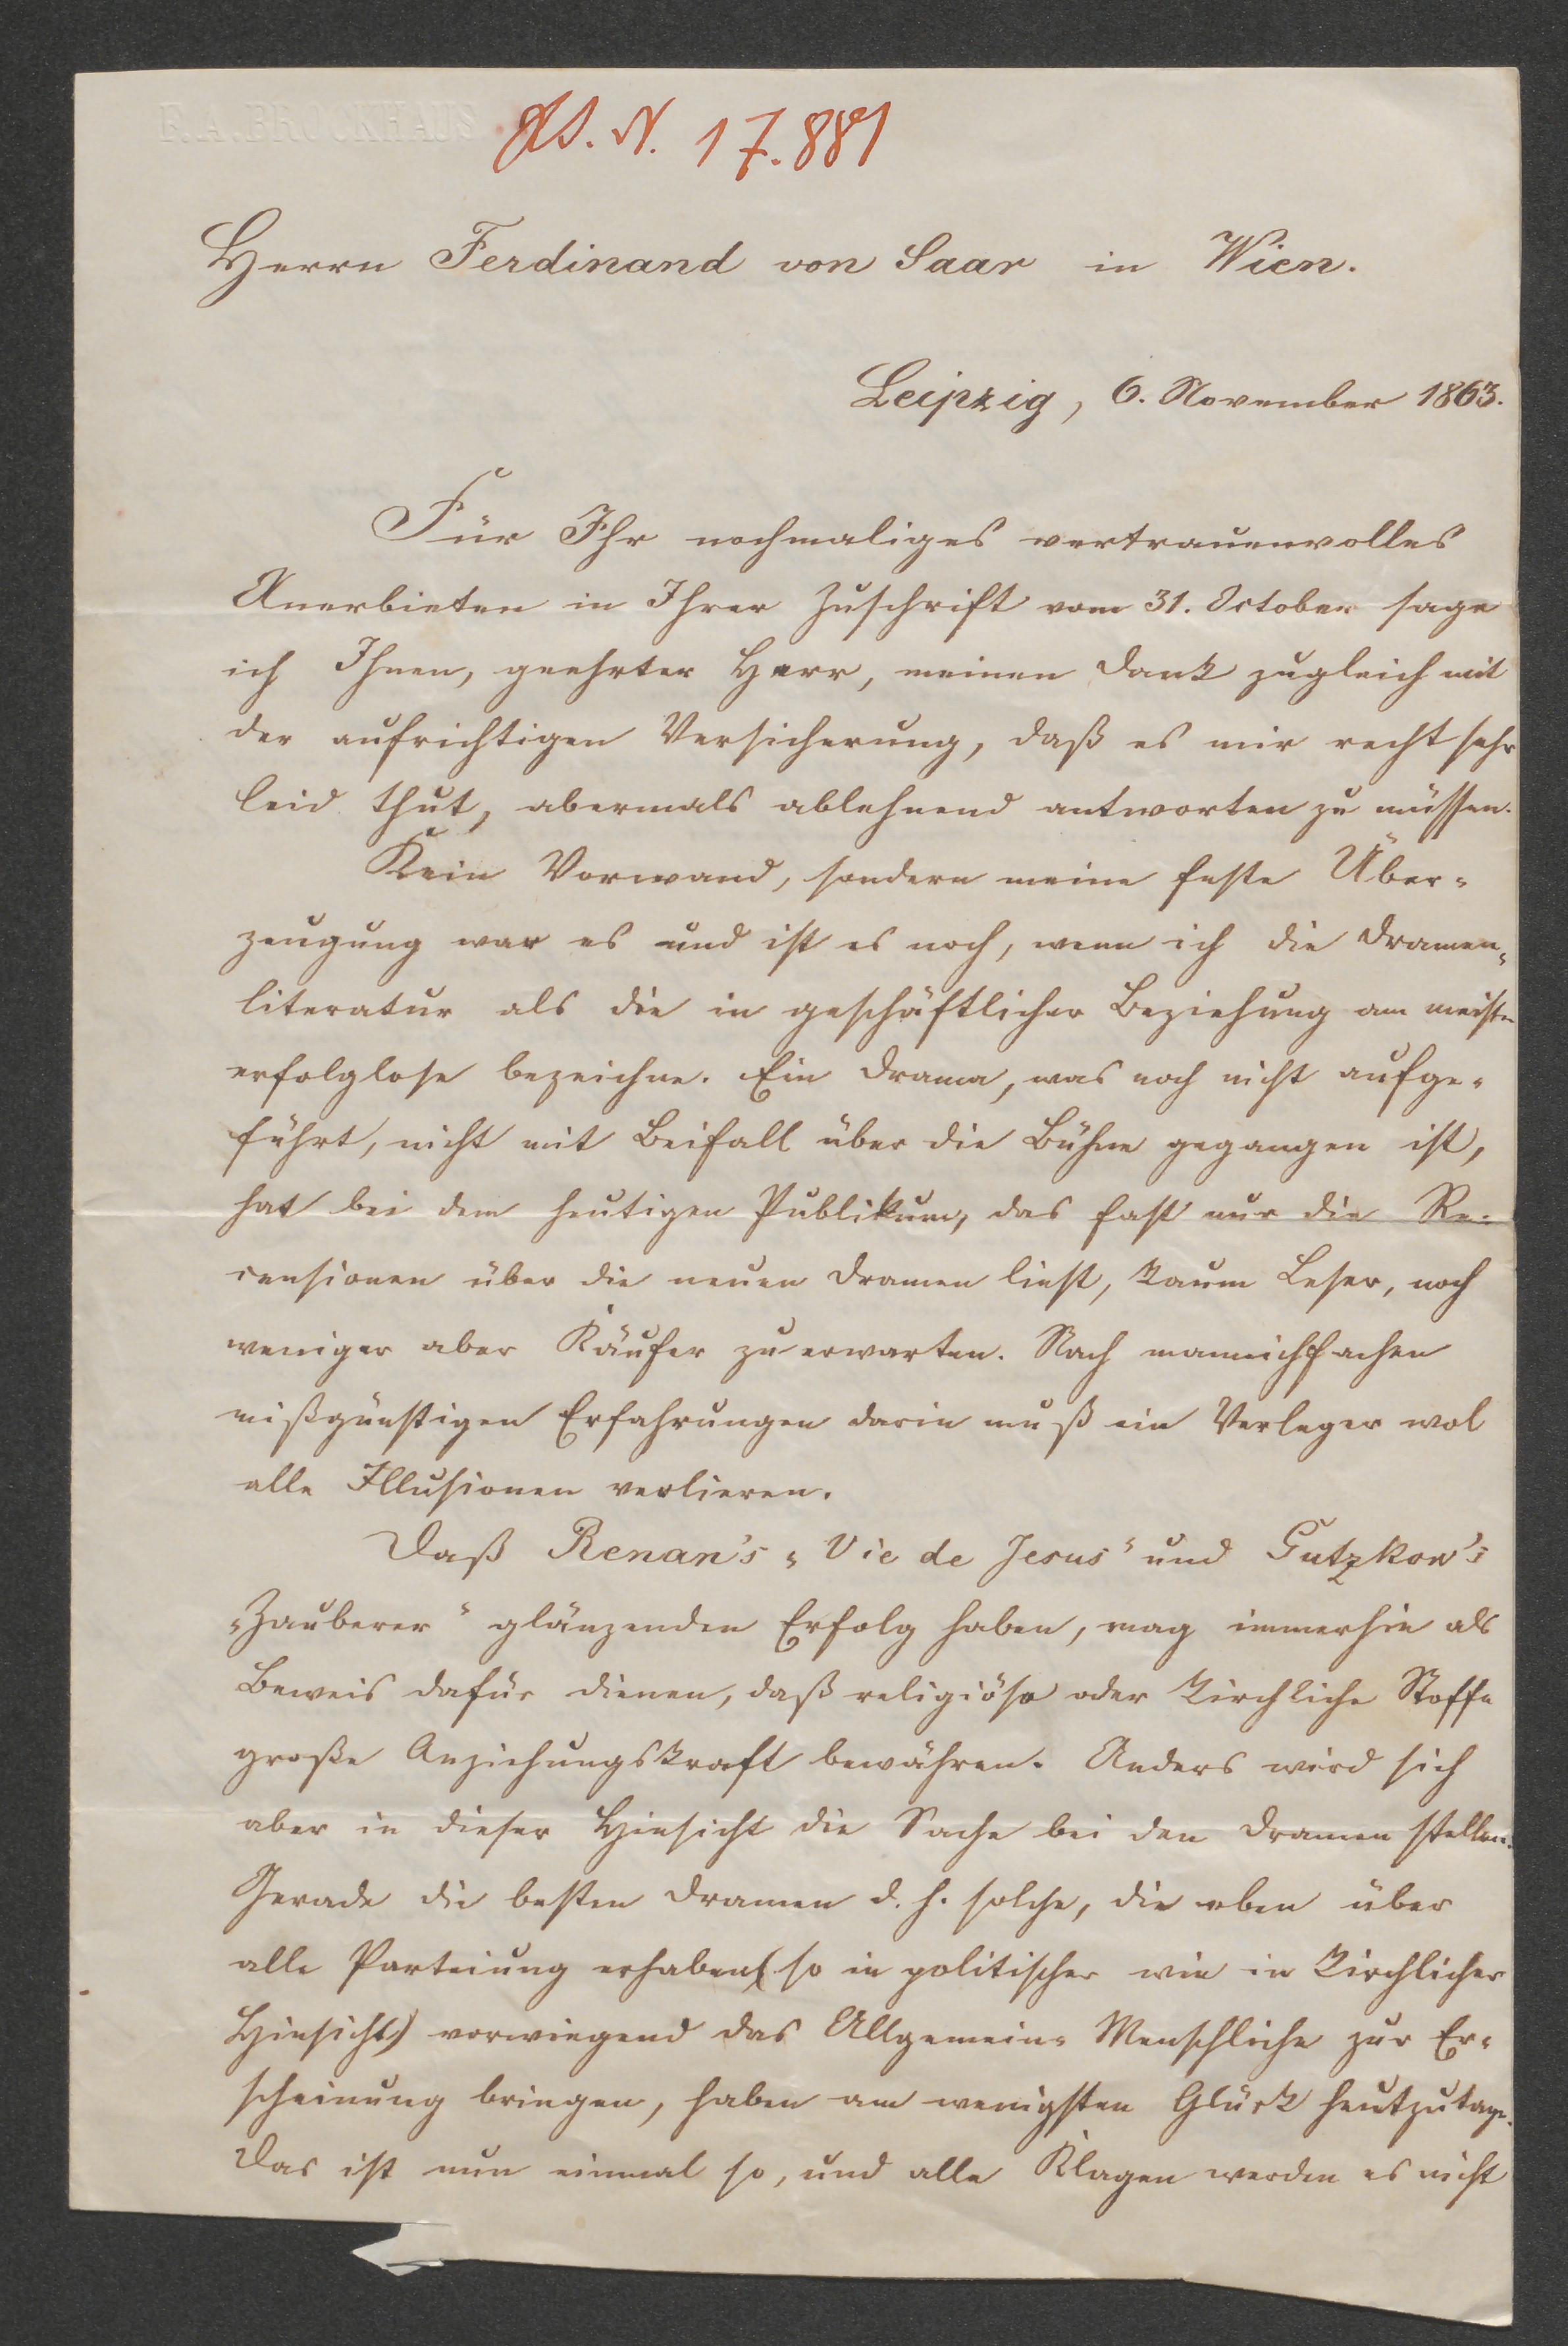 F. A. BROCKHAUS
I. N. 17.881
Herrn Ferdinand von Saar in Wien.
Leipzig, 6. November 1863.
Für Ihr nochmaliges vertrauenvolles
Anerbieten in Ihrer Zuschrift vom 31. October sage
ich Ihnen, geehrter Herr, meinen Dank zugleich mit
der aufrichtigen Versicherung, daß es mir recht sehr
leid thut, abermals ablehnend antworten zu müssen.
Kein Vorwand, sondern meine feste Über-
zeugung war es und ist es noch, wenn ich die Dramen-
literatur als die in geschäftlicher Beziehung am meisten
erfolglose bezeichne. Ein Drama, was noch nicht aufge-
führt, nicht mit Beifall über die Bühne gegangen ist,
hat bei dem heutigen Publikum, das fast nur die Re-
censionen über die neuen Dramen liest, kaum Leser, noch
weniger aber Käufer zu erwarten. Nach mannichfachen
mißgünstigen Erfahrungen darin muß ein Verleger wol
alle Illusionen verlieren.
Daß Renan's „Vie de Jesus" und Gutzkow's
„Zauberer" glänzenden Erfolg haben, mag immerhin als
Beweis dafür dienen, daß religiöse oder kirchliche Stoffe
große Anziehungskraft bewähren. Anders wird sich
aber in dieser Hinsicht die Sache bei den Dramen stellen.
Gerade die besten Dramen d. h. solche, die eben über
alle Parteiung erhaben (so in politischer wie in kirchlicher
Hinsicht) vorwiegend das Allgemein-Menschliche zur Er-
scheinung bringen, haben am wenigsten Glück heutzutage.
Das ist nun einmal so, und alle Klagen werden es nicht